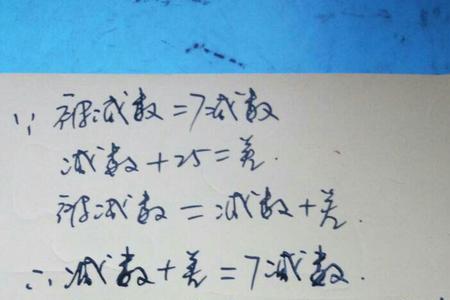 ∵ 被减数=7减数
减数+25=差.
被减数=减数+差.
∴减数+差=7减数.